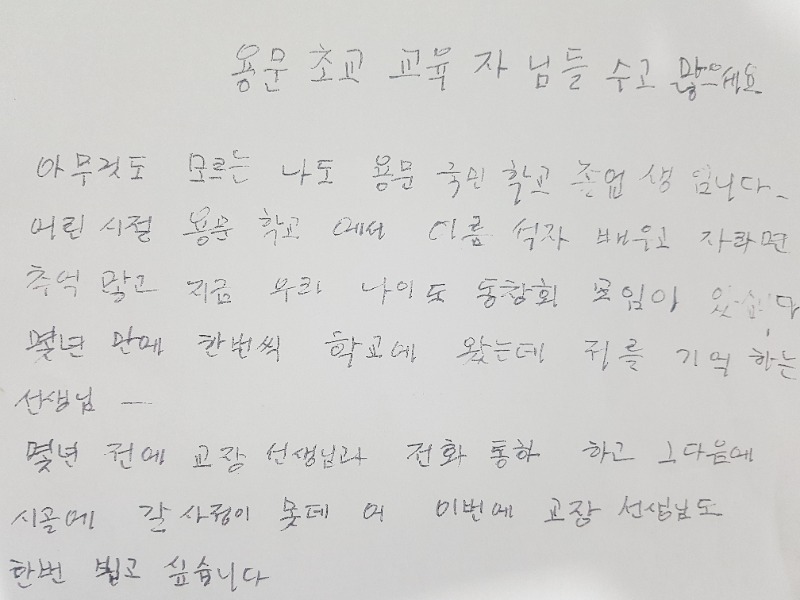 용문 초교 교육 자 님들 수고 많으세요
아무것도 모르는 나도 용문 국민 학교 졸업 생 입니다
어린 시절 용문 학교 에서 이름 석자 배우고 자라면
추억 많고 지금 우리 나이도 동창회 모임이 있습니다
몇년 만에 한번씩 학교에 왔는데 저를 기억 하는
선생님 —
몇년 전에 교장 선생님과 전화 통화 하고 그다음에
시골에 갈 사정이 못데 어 이번에 교장 선생님도
한번 뵙고 싶습니다